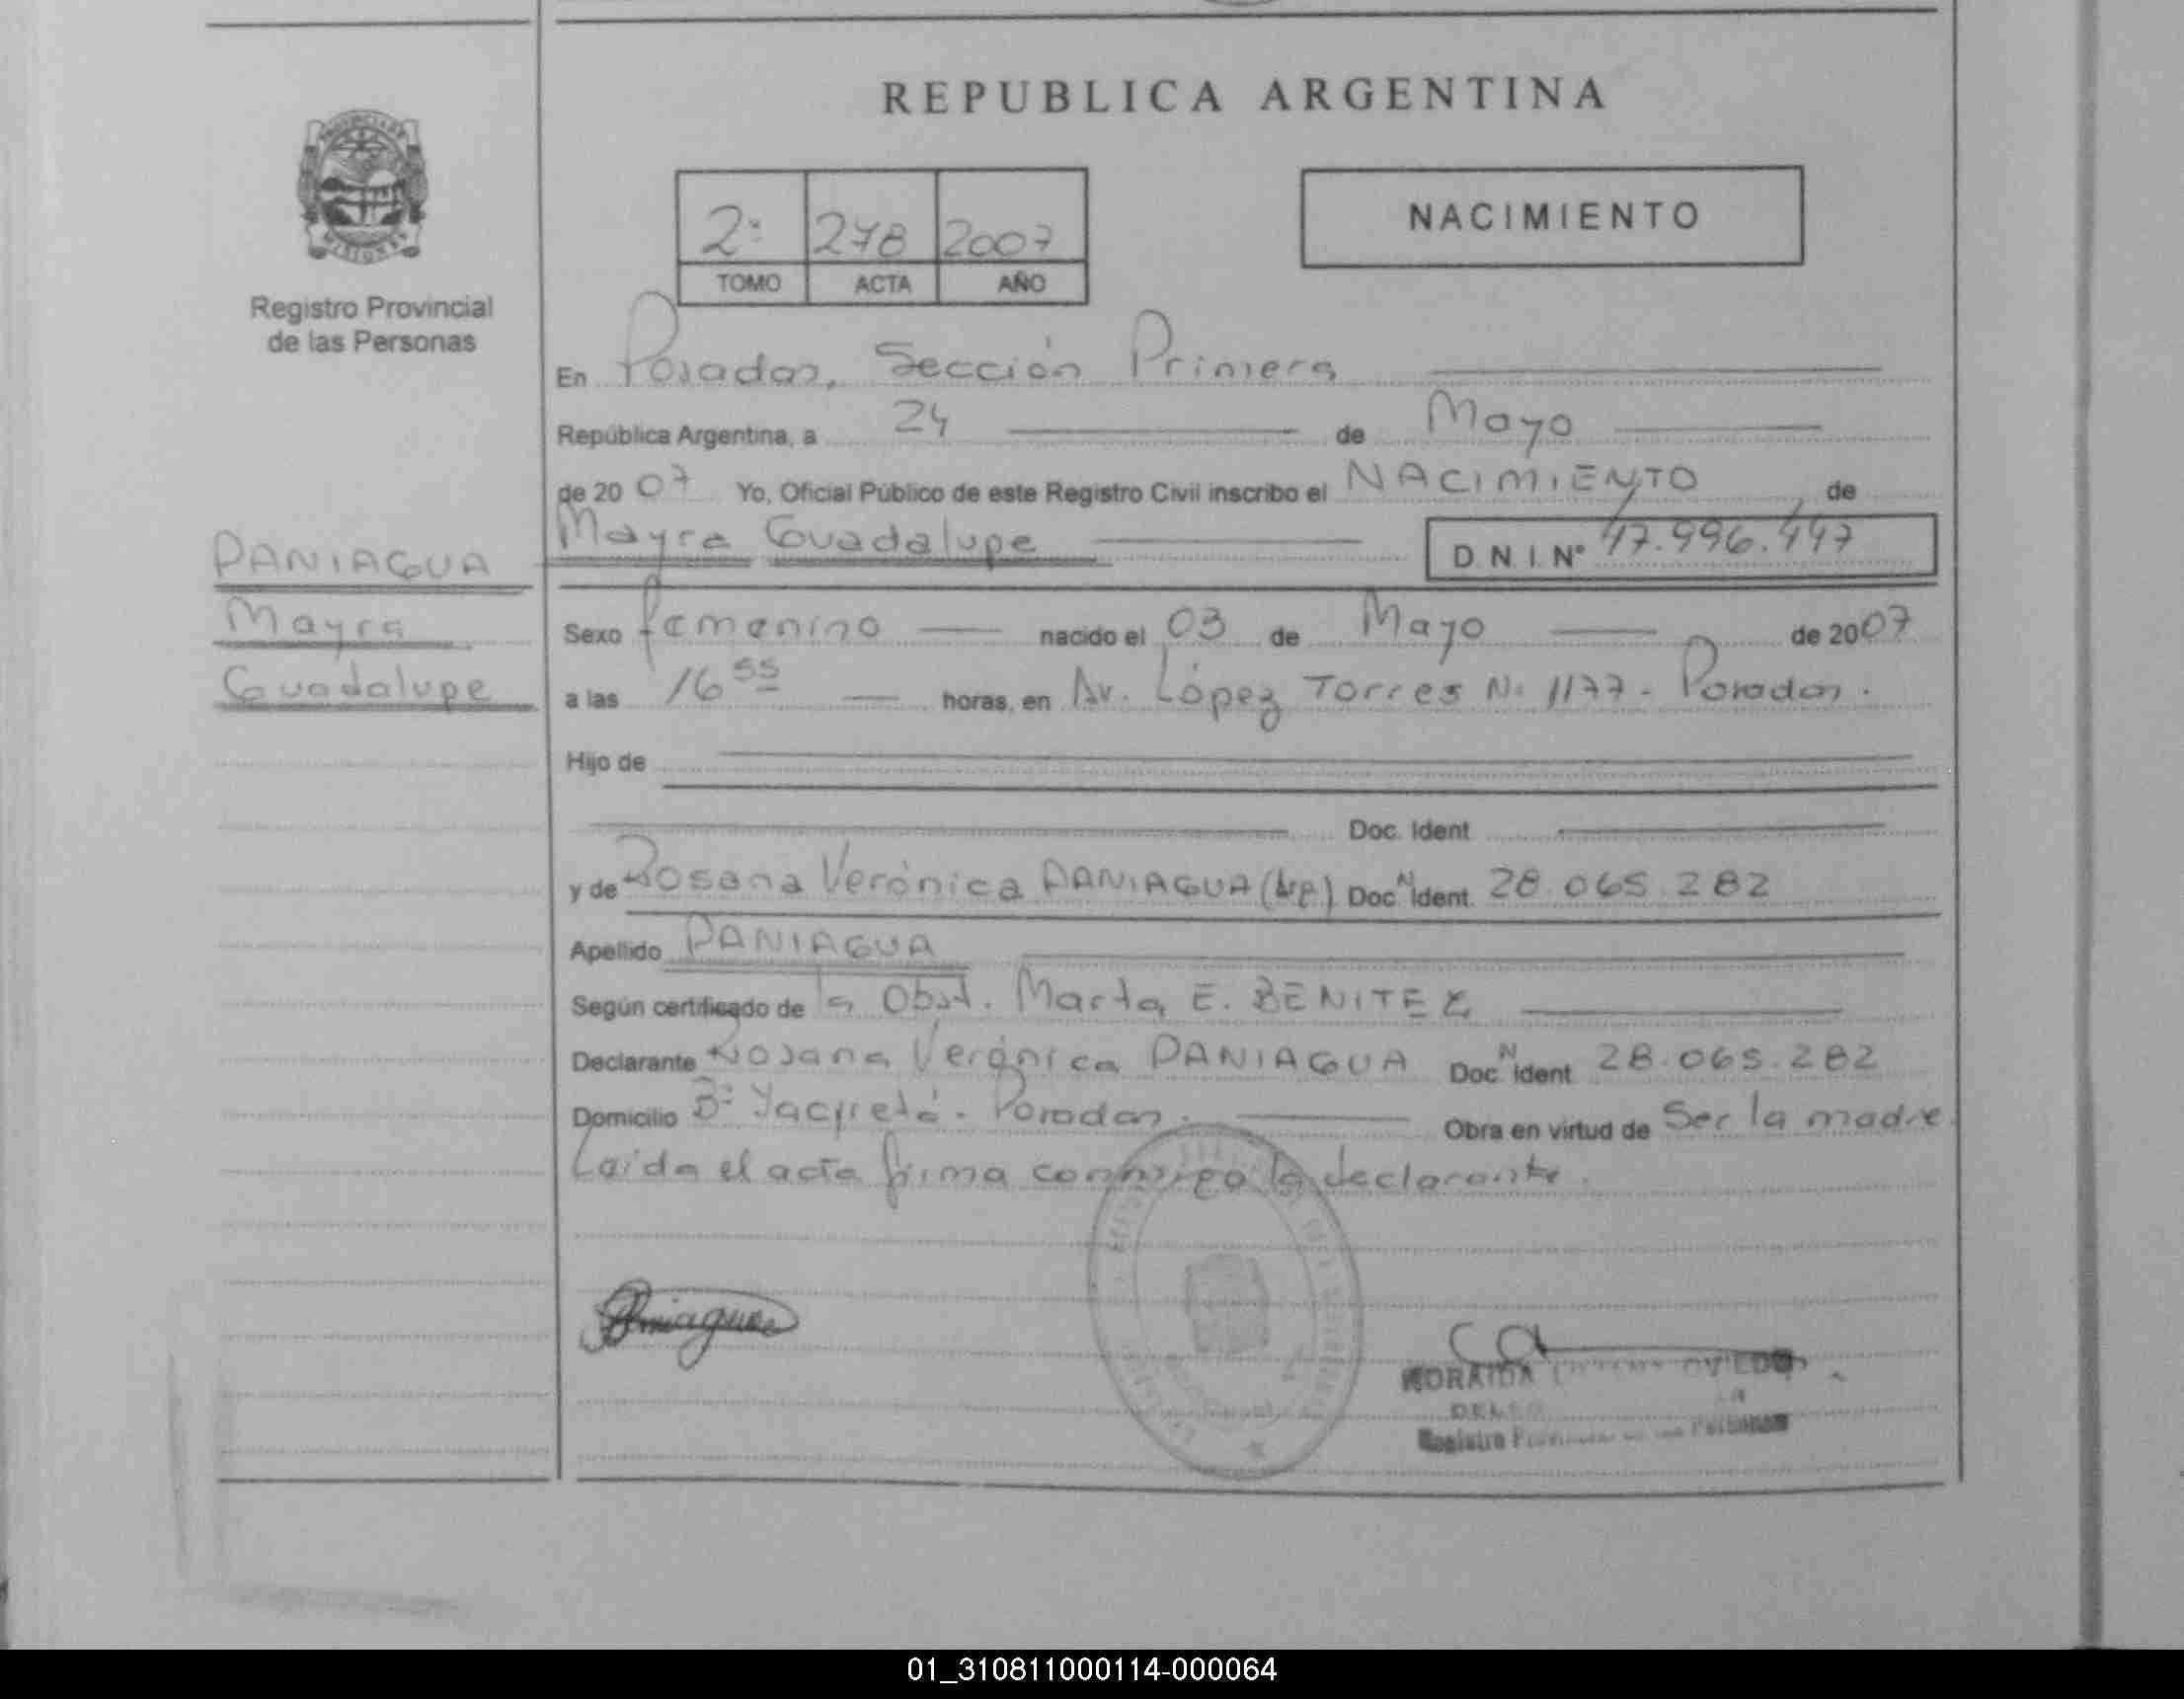 REPUBLICA ARGENTINA
PROVINCIA DE
MISIONES
Registro Provincial
de las Personas
2º 278 2007
TOMO ACTA AÑO
NACIMIENTO
En Posadas, Sección Primera
República Argentina, a 24 de Mayo
de 2007 Yo, Oficial Público de este Registro Civil inscribo el NACIMIENTO, de
Mayra Guadalupe D.N.I. Nº 47.996.447
PANIAGUA
Mayra
Guadalupe
Sexo femenino nacido el 03 de Mayo de 2007
a las 16 55 horas, en Av. López Torres Nº 1177 - Posadas.
Hijo de
Doc. Ident
y de Rosana Verónica PANIAGUA (Arg.) Doc N Ident. 28.065.282
Apellido PANIAGUA
Según certificado de la Obst. Marta E. BENITEZ
Declarante Rosana Verónica PANIAGUA Doc N Ident 28.065.282
Domicilio Bº Yacyretá - Posadas. Obra en virtud de Ser la madre
Leída el acta firma conmigo la declarante.
Paniagua
OVIEDO
Registro
01_310811000114-000064